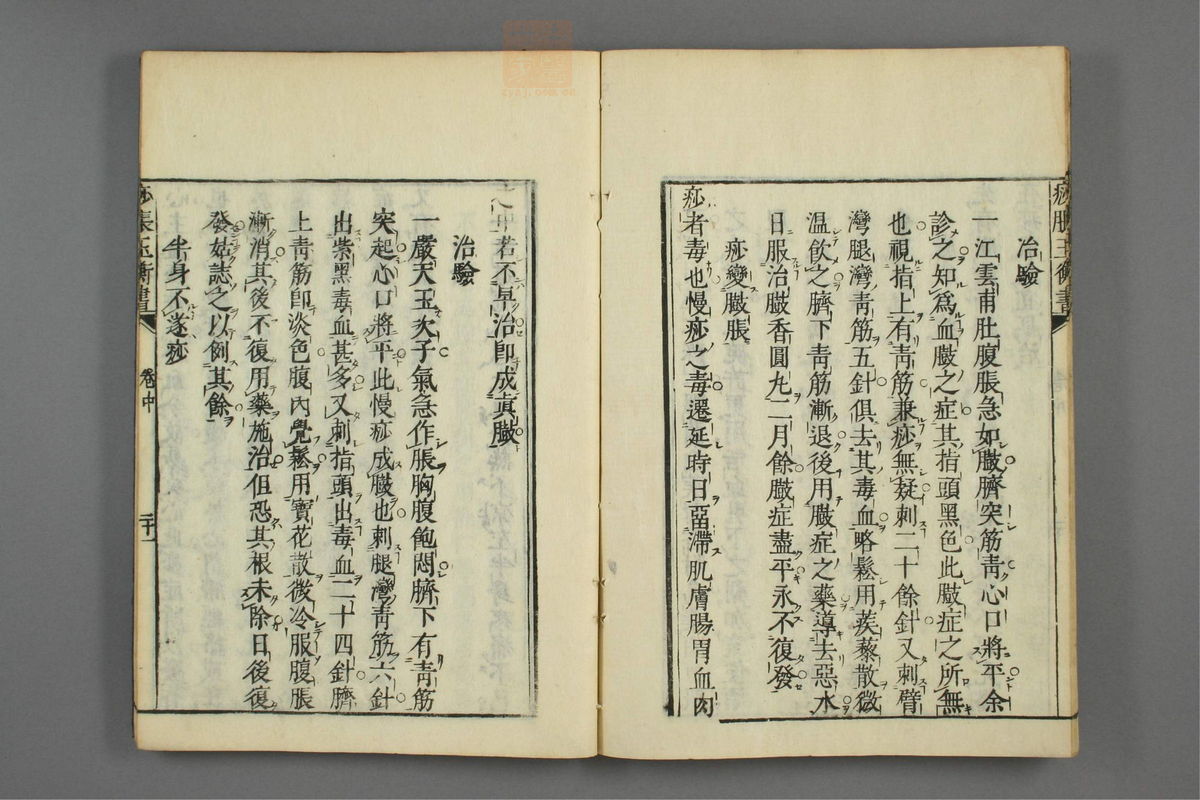 治驗
一江雲甫肚腹脹急如臌臍突筋青心口將平余
診之知爲血臌之症其指頭黑色此臌症之所無
也視指上有青筋兼痧無疑刺二十餘針又刺臂
灣腿灣青筋五針俱去其毒血略鬆用蒺藜散微
温飲之臍下青筋漸退後用臌症之藥導去惡水
日服治臌香圓丸二月餘臌症盡平永不復發
痧變臌脹
痧者毒也慢痧之毒遷延時日畱滯肌膚腸胃血肉
若不早治卽成眞臌
治驗
一嚴天玉次子氣急作脹胸腹飽悶臍下有青筋
突起心口將平此慢痧成臌也刺腿灣青筋六針
出紫黑毒血甚多又刺指頭出毒血二十四針臍
上青筋卽淡色腹內覺鬆用寶花散微冷服腹脹
漸消其後不復用藥施治但恐其根未除日後復
發姑誌之以例其餘
半身不遂痧
痧脹玉衡書
卷中
二十一